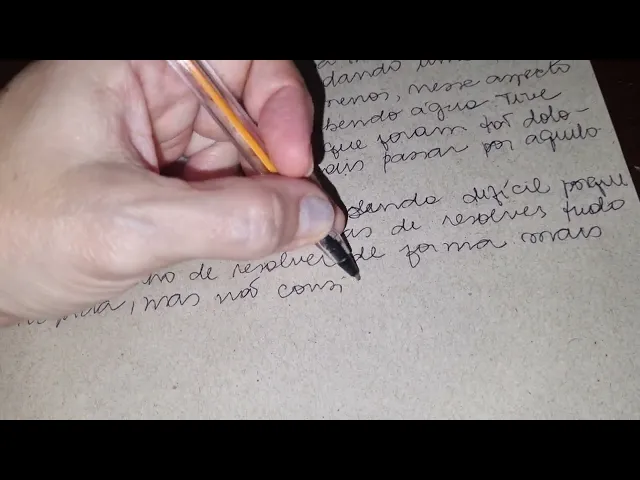 dando um
menos, nesse aspecto
bendo água tive
que foram tão dolo-
ais passar por aquilo
sendo difícil porque
as de resolver tudo
no de resolver de forma mais
, mas não consi